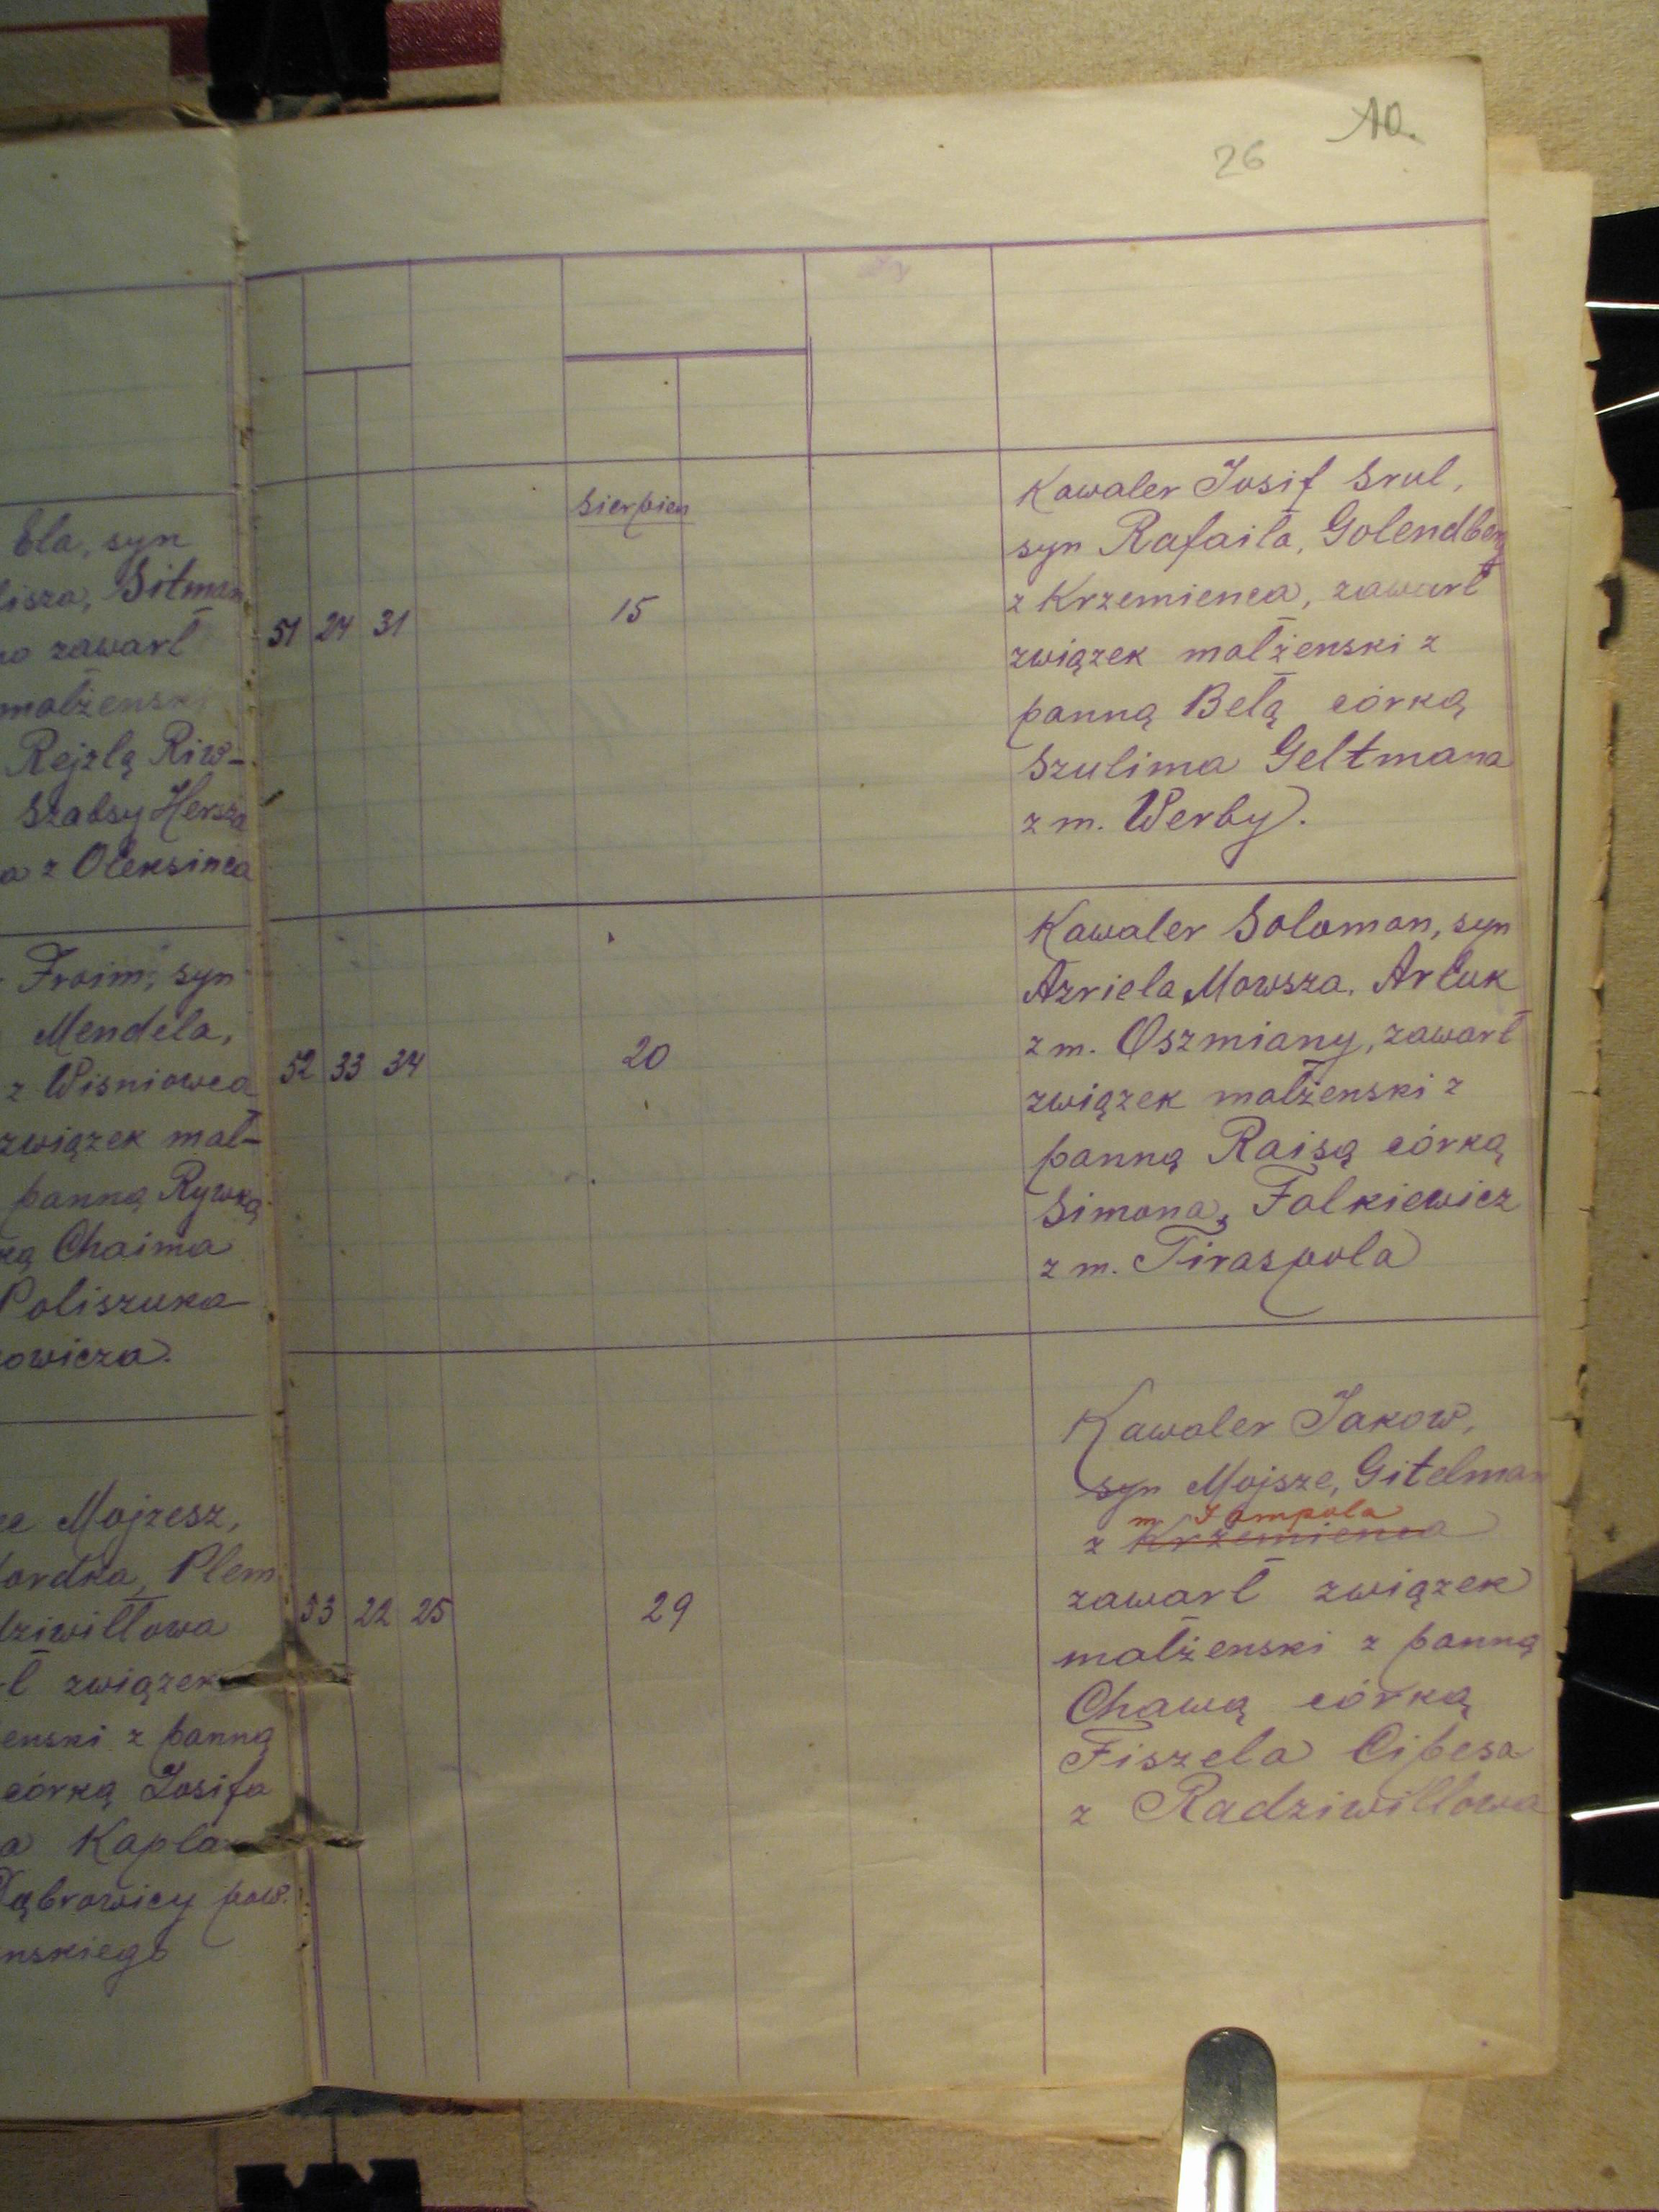 10.
26
Ela, syn
lisza, Sitman
zawarł
małżensk
Rejzlą Riw-
Szabsy Hersza
a z Oleksinca
Froim, syn
Mendela,
z Wisniowca
związek mał-
panną Rywką
ką Chaima
Poliszuka
owicza.
ec Mojzesz,
ordka, Plem
dziwiłłowa
ł związek
enski z panną
córką Iosifa
a Kapla
Dąbrowicy pow.
nskiego
Sierpien
51 24 31 15
Kawaler Iosif Srul,
syn Rafaiła, Golendberg
z Krzemienca, zawarł
związek małżenski z
panną Belą córką
Szulima Geltmana
z m. Werby.
52 33 34 20
Kawaler Soloman, syn
Azriela Mowsza, Arluk
z m. Oszmiany, zawarł
związek małżenski z
panną Raisą córką
Simona, Falkiewicz
z m. Tiraspola
53 22 25 29
Kawaler Jakow,
syn Mojsze, Gitelman
m. Jampola
z Krzemienca
zawarł związek
małżenski z panną
Chawą córką
Fiszela Cipesa
z Radziwiłłowa